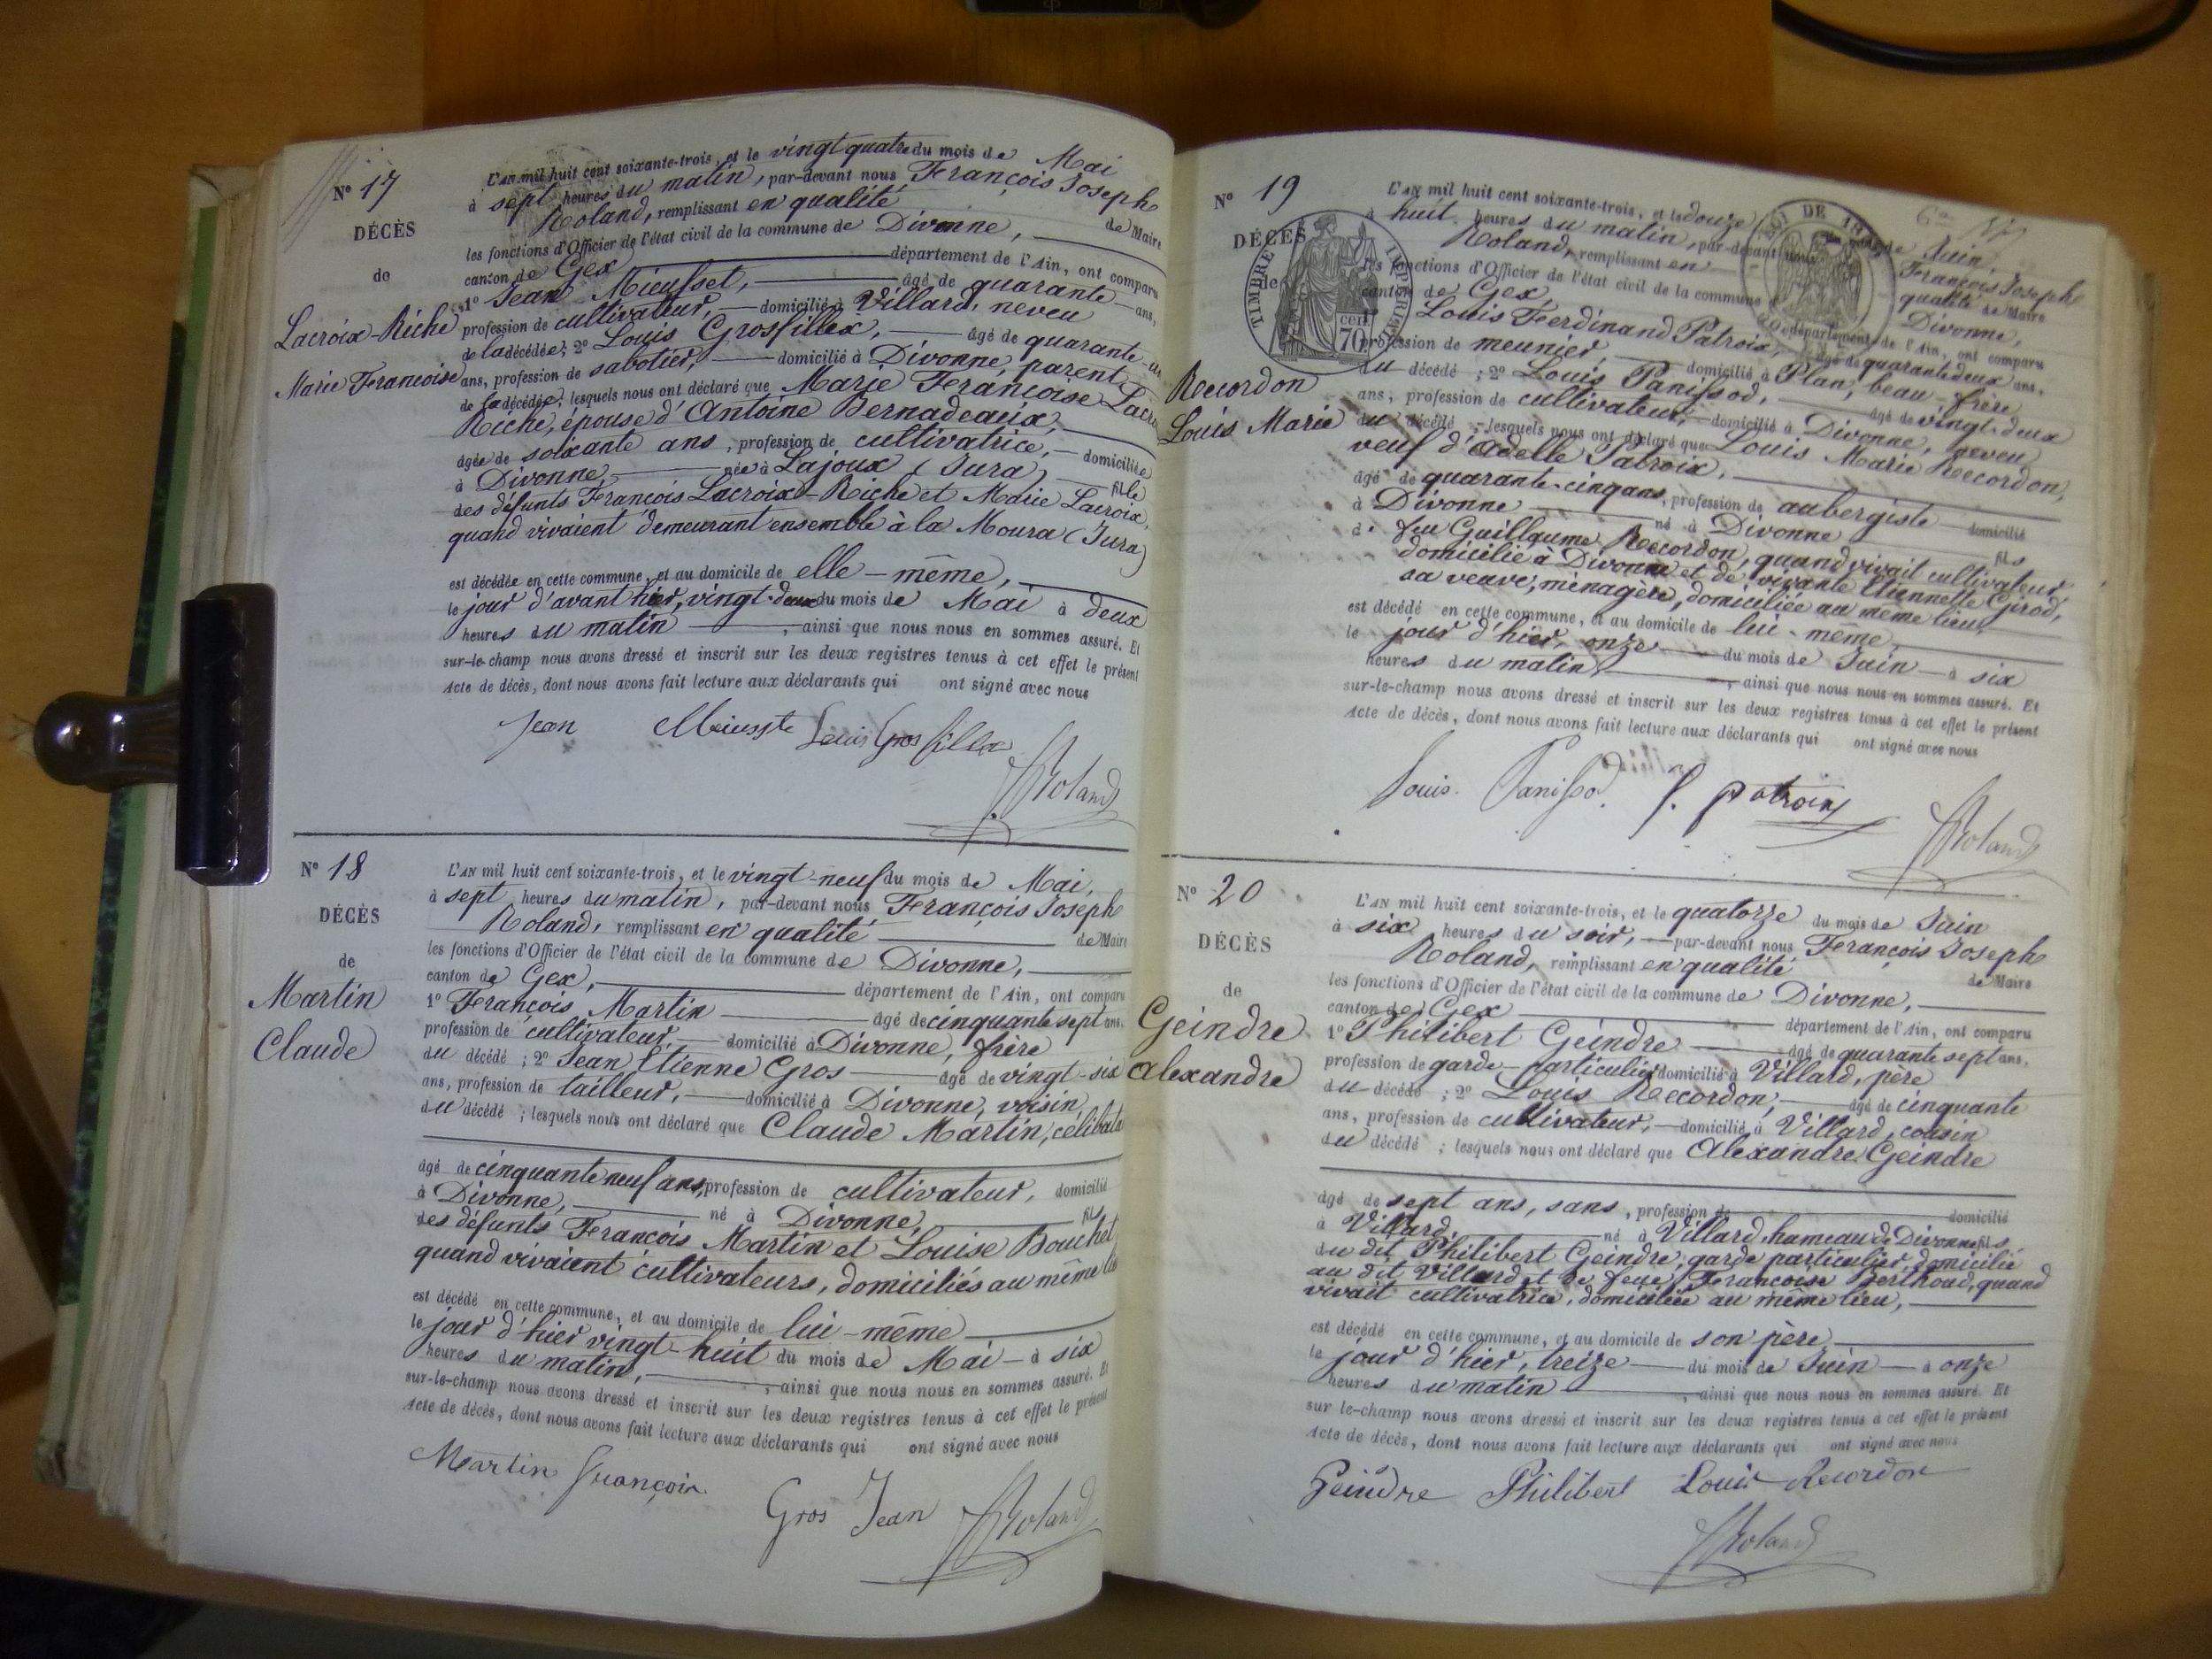 Nº 17
DÉCÈS
de
Lacroix-Riche
Marie Francoise
L'AN mil huit cent soixante-trois, et le vingt quatre du mois de Mai
à sept heures du matin, par-devant nous François Joseph
Roland, remplissant en qualité de Maire
les fonctions d'Officier de l'état civil de la commune de Divonne,
canton de Gex département de l'Ain, ont comparu
1º Jean Mieusset, âgé de quarante ans,
profession de cultivateur, domicilié à Villard, neveu
de la décédée; 2º Louis Grosfillex, âgé de quarante-un
ans, profession de sabotier, domicilié à Divonne, parent
de la décédée; lesquels nous ont déclaré que Marie Françoise Lacroix
Riche, épouse d'Antoine Bernadeaux,
âgée de soixante ans, profession de cultivatrice, domiciliée
à Divonne, née à Lajoux (Jura) fille
des défunts François Lacroix-Riche et Marie Lacroix,
quand vivaient demeurant ensemble à la Moura (Jura)
est décédée en cette commune, et au domicile de elle-même,
le jour d'avant hier, vingt-deux du mois de Mai à deux
heures du matin, ainsi que nous nous en sommes assuré. Et
sur-le-champ nous avons dressé et inscrit sur les deux registres tenus à cet effet le présent
Acte de décès, dont nous avons fait lecture aux déclarants qui ont signé avec nous
Jean Mieusste Louis Gros fillex
Roland
Nº 18
DÉCÈS
de
Martin
Claude
L'AN mil huit cent soixante-trois, et le vingt-neuf du mois de Mai,
à sept heures du matin, par-devant nous François Joseph
Roland, remplissant en qualité de Maire
les fonctions d'Officier de l'état civil de la commune de Divonne,
canton de Gex, département de l'Ain, ont comparu
1º François Martin âgé de cinquante sept ans,
profession de cultivateur, domicilié à Divonne, frère
du décédé; 2º Jean Etienne Gros âgé de vingt-six
ans, profession de tailleur, domicilié à Divonne, voisin
du décédé; lesquels nous ont déclaré que Claude Martin, célibata
âgé de cinquante neuf ans, profession de cultivateur, domicilié
à Divonne, né à Divonne, fils
des défunts François Martin et Louise Bouchet
quand vivaient cultivateurs, domiciliés au même lieu
est décédé en cette commune, et au domicile de lui-même
le jour d'hier vingt-huit du mois de Mai à six
heures du matin, ainsi que nous nous en sommes assuré. Et
sur-le-champ nous avons dressé et inscrit sur les deux registres tenus à cet effet le présent
Acte de décès, dont nous avons fait lecture aux déclarants qui ont signé avec nous
Martin François
Gros Jean Roland
Nº 19
DÉCÈS
de
Recordon
Louis Marie
TIMBRE IMPÉRIAL
70 cent.
LOI DE
L'AN mil huit cent soixante-trois, et le douze du mois de Juin,
à huit heures du matin, par-devant nous François Joseph
Roland, remplissant en qualité de Maire
les fonctions d'Officier de l'état civil de la commune de Divonne,
canton de Gex, département de l'Ain, ont comparu
1º Louis Ferdinand Patroix, âgé de quarante deux ans,
profession de meunier, domicilié à Plan, beau-frère
du décédé; 2º Louis Panissod, âgé de vingt-deux
ans, profession de cultivateur, domicilié à Divonne, neveu
du décédé; lesquels nous ont déclaré que Louis Marie Recordon,
veuf d'Adelle Patroix,
âgé de quarante-cinq ans, profession de aubergiste domicilié
à Divonne né à Divonne fils
de feu Guillaume Recordon, quand vivait cultivateur,
domicilié à Divonne et de vivante Etiennette Girod,
sa veuve, ménagère, domiciliée au même lieu,
est décédé en cette commune, et au domicile de lui-même,
le jour d'hier, onze du mois de Juin à six
heures du matin, ainsi que nous nous en sommes assuré. Et
sur-le-champ nous avons dressé et inscrit sur les deux registres tenus à cet effet le présent
Acte de décès, dont nous avons fait lecture aux déclarants qui ont signé avec nous
Louis Panissod. f. patroix
Roland
Nº 20
DÉCÈS
de
Geindre
Alexandre
L'AN mil huit cent soixante-trois, et le quatorze du mois de Juin
à six heures du soir, par-devant nous François Joseph
Roland, remplissant en qualité de Maire
les fonctions d'Officier de l'état civil de la commune de Divonne,
canton de Gex département de l'Ain, ont comparu
1º Philibert Geindre âgé de quarante sept ans,
profession de garde-particulier domicilié à Villard, père
du décédé; 2º Louis Recordon, âgé de cinquante
ans, profession de cultivateur, domicilié à Villard, cousin
du décédé; lesquels nous ont déclaré que Alexandre Geindre
âgé de sept ans, sans, profession de domicilié
à Villard, né à Villard, hameau de Divonne fils
du dit Philibert Geindre, garde particulier, domicilié
au dit Villard et de feue Françoise Berthoud, quand
vivait cultivatrice, domiciliée au même lieu,
est décédé en cette commune, et au domicile de son père
le jour d'hier, treize du mois de Juin à onze
heures du matin, ainsi que nous nous en sommes assuré. Et
sur le-champ nous avons dressé et inscrit sur les deux registres tenus à cet effet le présent
Acte de décès, dont nous avons fait lecture aux déclarants qui ont signé avec nous
Geindre Philibert Louis Recordon
Roland